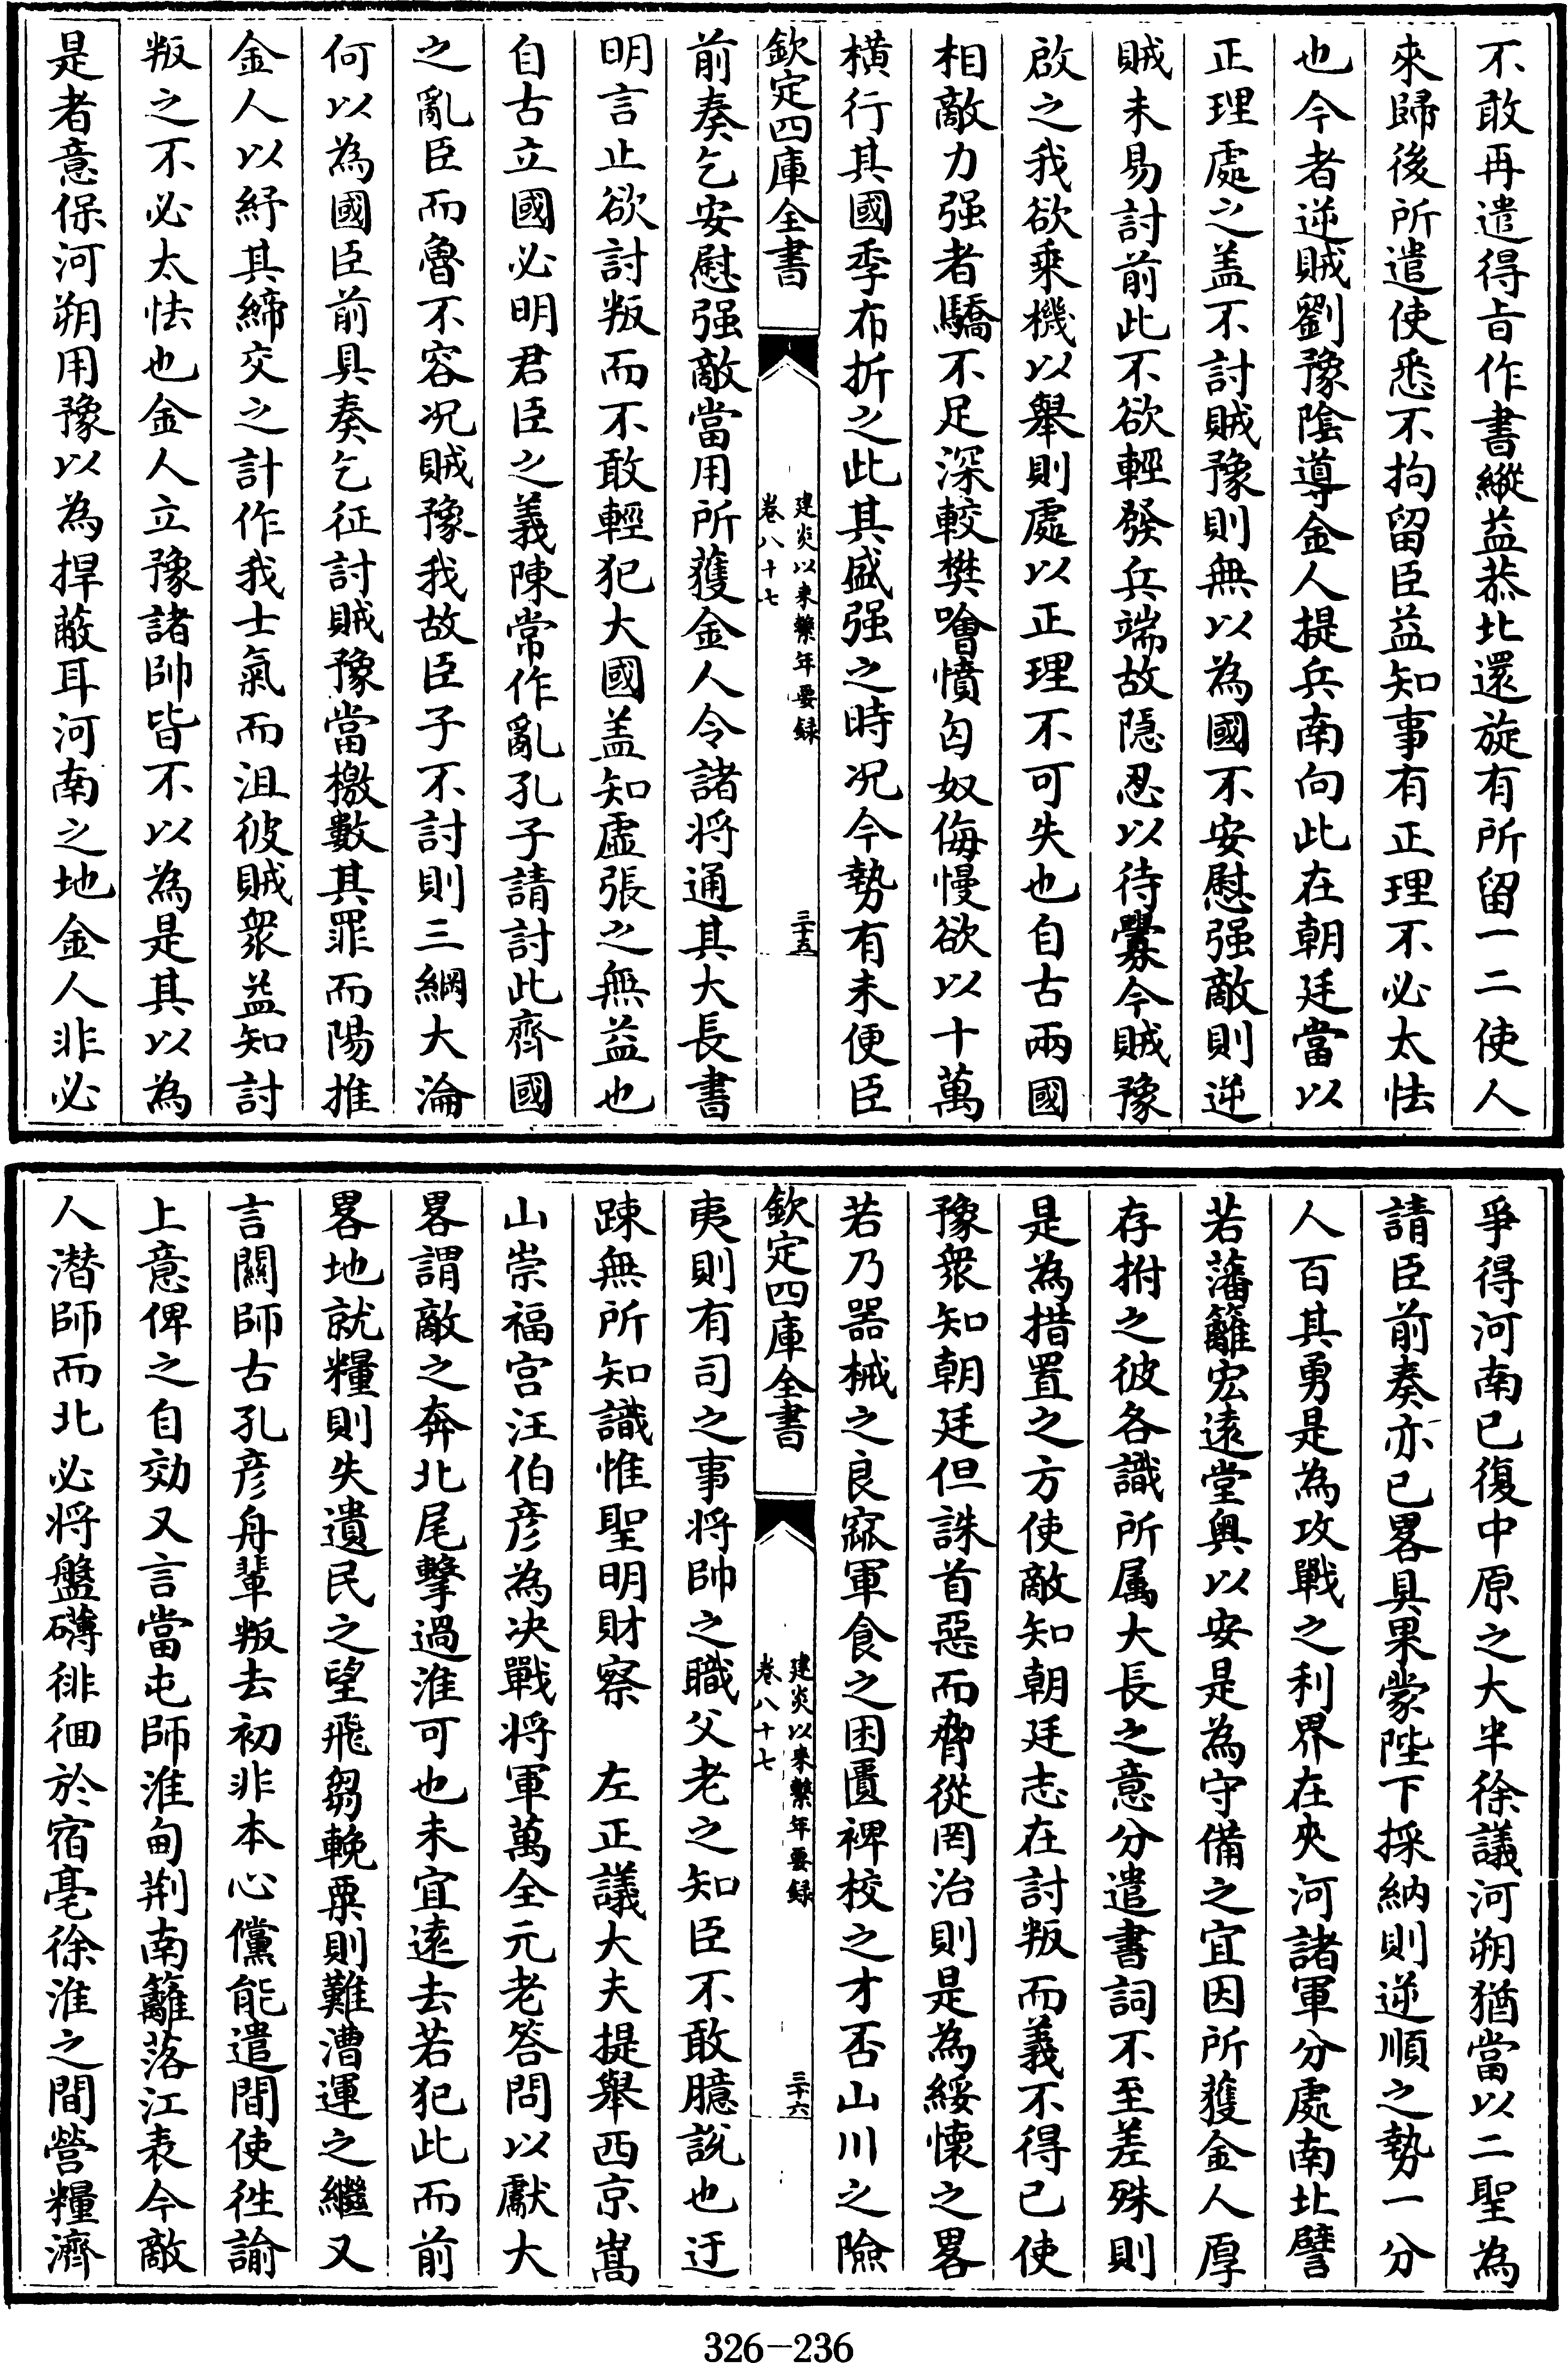 不敢再遣得㫖作書縱益恭北還旋有所留一二使人
來歸後所遣使悉不拘留臣益知事有正理不必太怯
也今者逆賊劉豫陰導金人提兵南向此在朝廷當以
正理處之盖不討賊豫則無以為國不安慰强敵則逆
賊未易討前此不欲輕發兵端故隱忍以待釁今賊豫
啟之我欲乗機以舉則處以正理不可失也自古兩國
相敵力强者驕不足深較樊噲憤匈奴侮慢欲以十萬
横行其國季布折之此其盛强之時况今勢有未便臣
欽定四庫全書
建炎以来繫年要録
卷八十七
三十五
前奏乞安慰强敵當用所獲金人令諸将通其大長書
明言止欲討叛而不敢輕犯大國盖知虚張之無益也
自古立國必明君臣之義陳常作亂孔子請討此齊國
之亂臣而魯不容况賊豫我故臣子不討則三綱大淪
何以為國臣前具奏乞征討賊豫當檄數其罪而陽推
金人以紓其締交之計作我士氣而沮彼賊衆益知討
叛之不必太怯也金人立豫諸帥皆不以為是其以為
是者意保河朔用豫以為捍蔽耳河南之地金人非必
爭得河南已復中原之大半徐議河朔猶當以二聖為
請臣前奏亦已畧具果蒙陛下採納則逆順之勢一分
人百其勇是為攻戰之利界在夾河諸軍分處南北譬
若藩籬宏遠堂奥以安是為守備之宜因所獲金人厚
存拊之彼各識所属大長之意分遣書詞不至差殊則
是為措置之方使敵知朝廷志在討叛而義不得已使
豫衆知朝廷但誅首惡而脅從罔治則是為綏懷之畧
若乃器械之良窳軍食之困匱裨校之才否山川之險
欽定四庫全書
建炎以来繫年要録
卷八十七
三十六
夷則有司之事将帥之職父老之知臣不敢臆説也迂
踈無所知識惟聖明財察　左正議大夫提舉西京嵩
山崇福宫汪伯彦為决戰将軍萬全元老答問以獻大
畧謂敵之奔北尾擊過淮可也未宜逺去若犯此而前
畧地就糧則失遺民之望飛芻輓粟則難漕運之繼又
言關師古孔彦舟輩叛去初非本心儻能遣間使徃諭
上意俾之自効又言當屯師淮甸荆南籬落江表今敵
人潜師而北必将盤礴徘徊於宿亳徐淮之間營糧濟
326-236